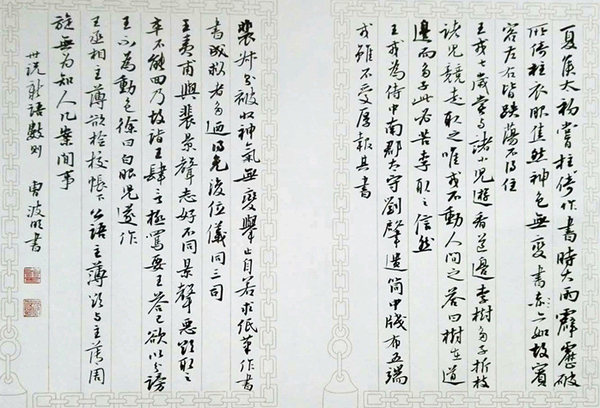 夏侯太初嘗柱倚作書時大雨霹靂破
所倚柱衣服焦然神色無變書亦如故賓
客左右皆跌蕩不得住
王戎七歲嘗與諸小兒遊看道邊李樹多子折枝
諸兒競走取之唯戎不動人問之答曰樹在道
邊而多子此必苦李取之信然
王戎為侍中南郡太守劉肇遺筒中牋布五端
戎雖不受厚報其書
裴叔則被收神氣無變舉止自若求紙筆作書
書成救者多迺得免後位儀同三司
王夷甫與裴景聲志好不同景聲惡欲取之
卒不能回乃故詣王肆言極罵要王答己欲以分謗
王不為動色徐曰白眼兒遂作
王丞相主薄欲檢校帳下公語主薄欲與主薄周
旋無為知人几案間事
世説新語數則 曹波明書